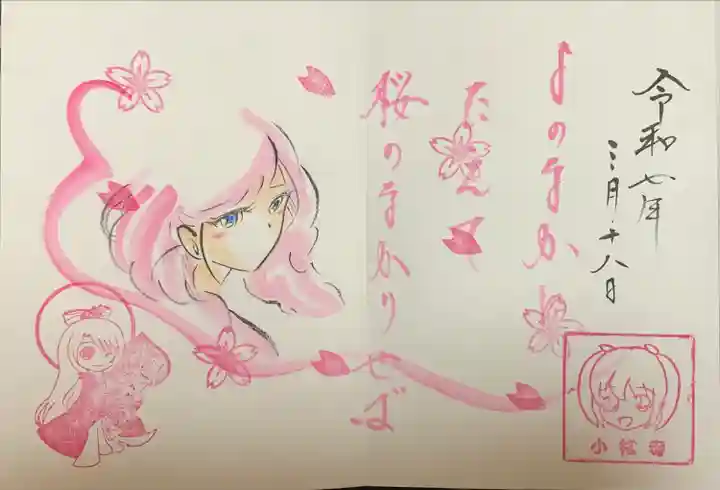 令和七年
三月十八日
よのなかに
たえて
桜のなかりせば